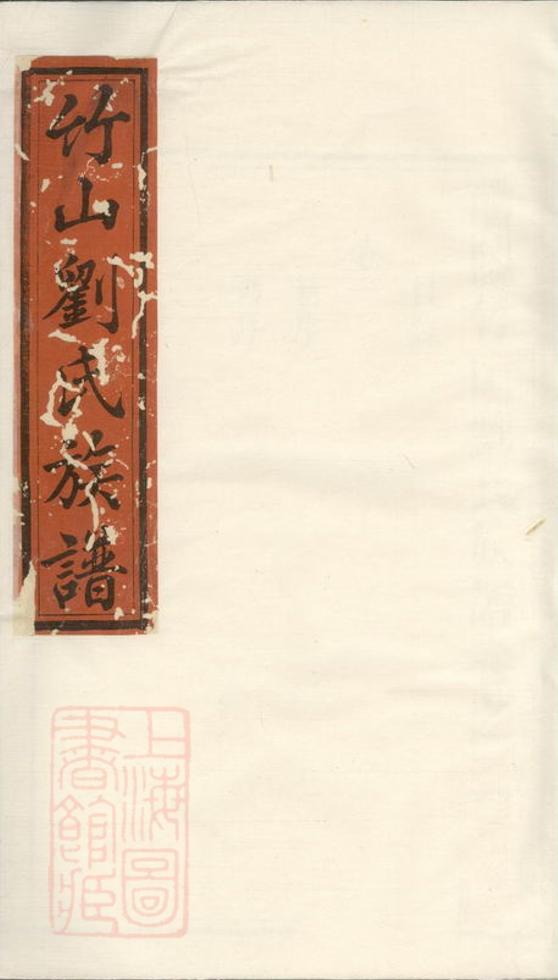 竹山劉氏族譜
上海圖
書館藏